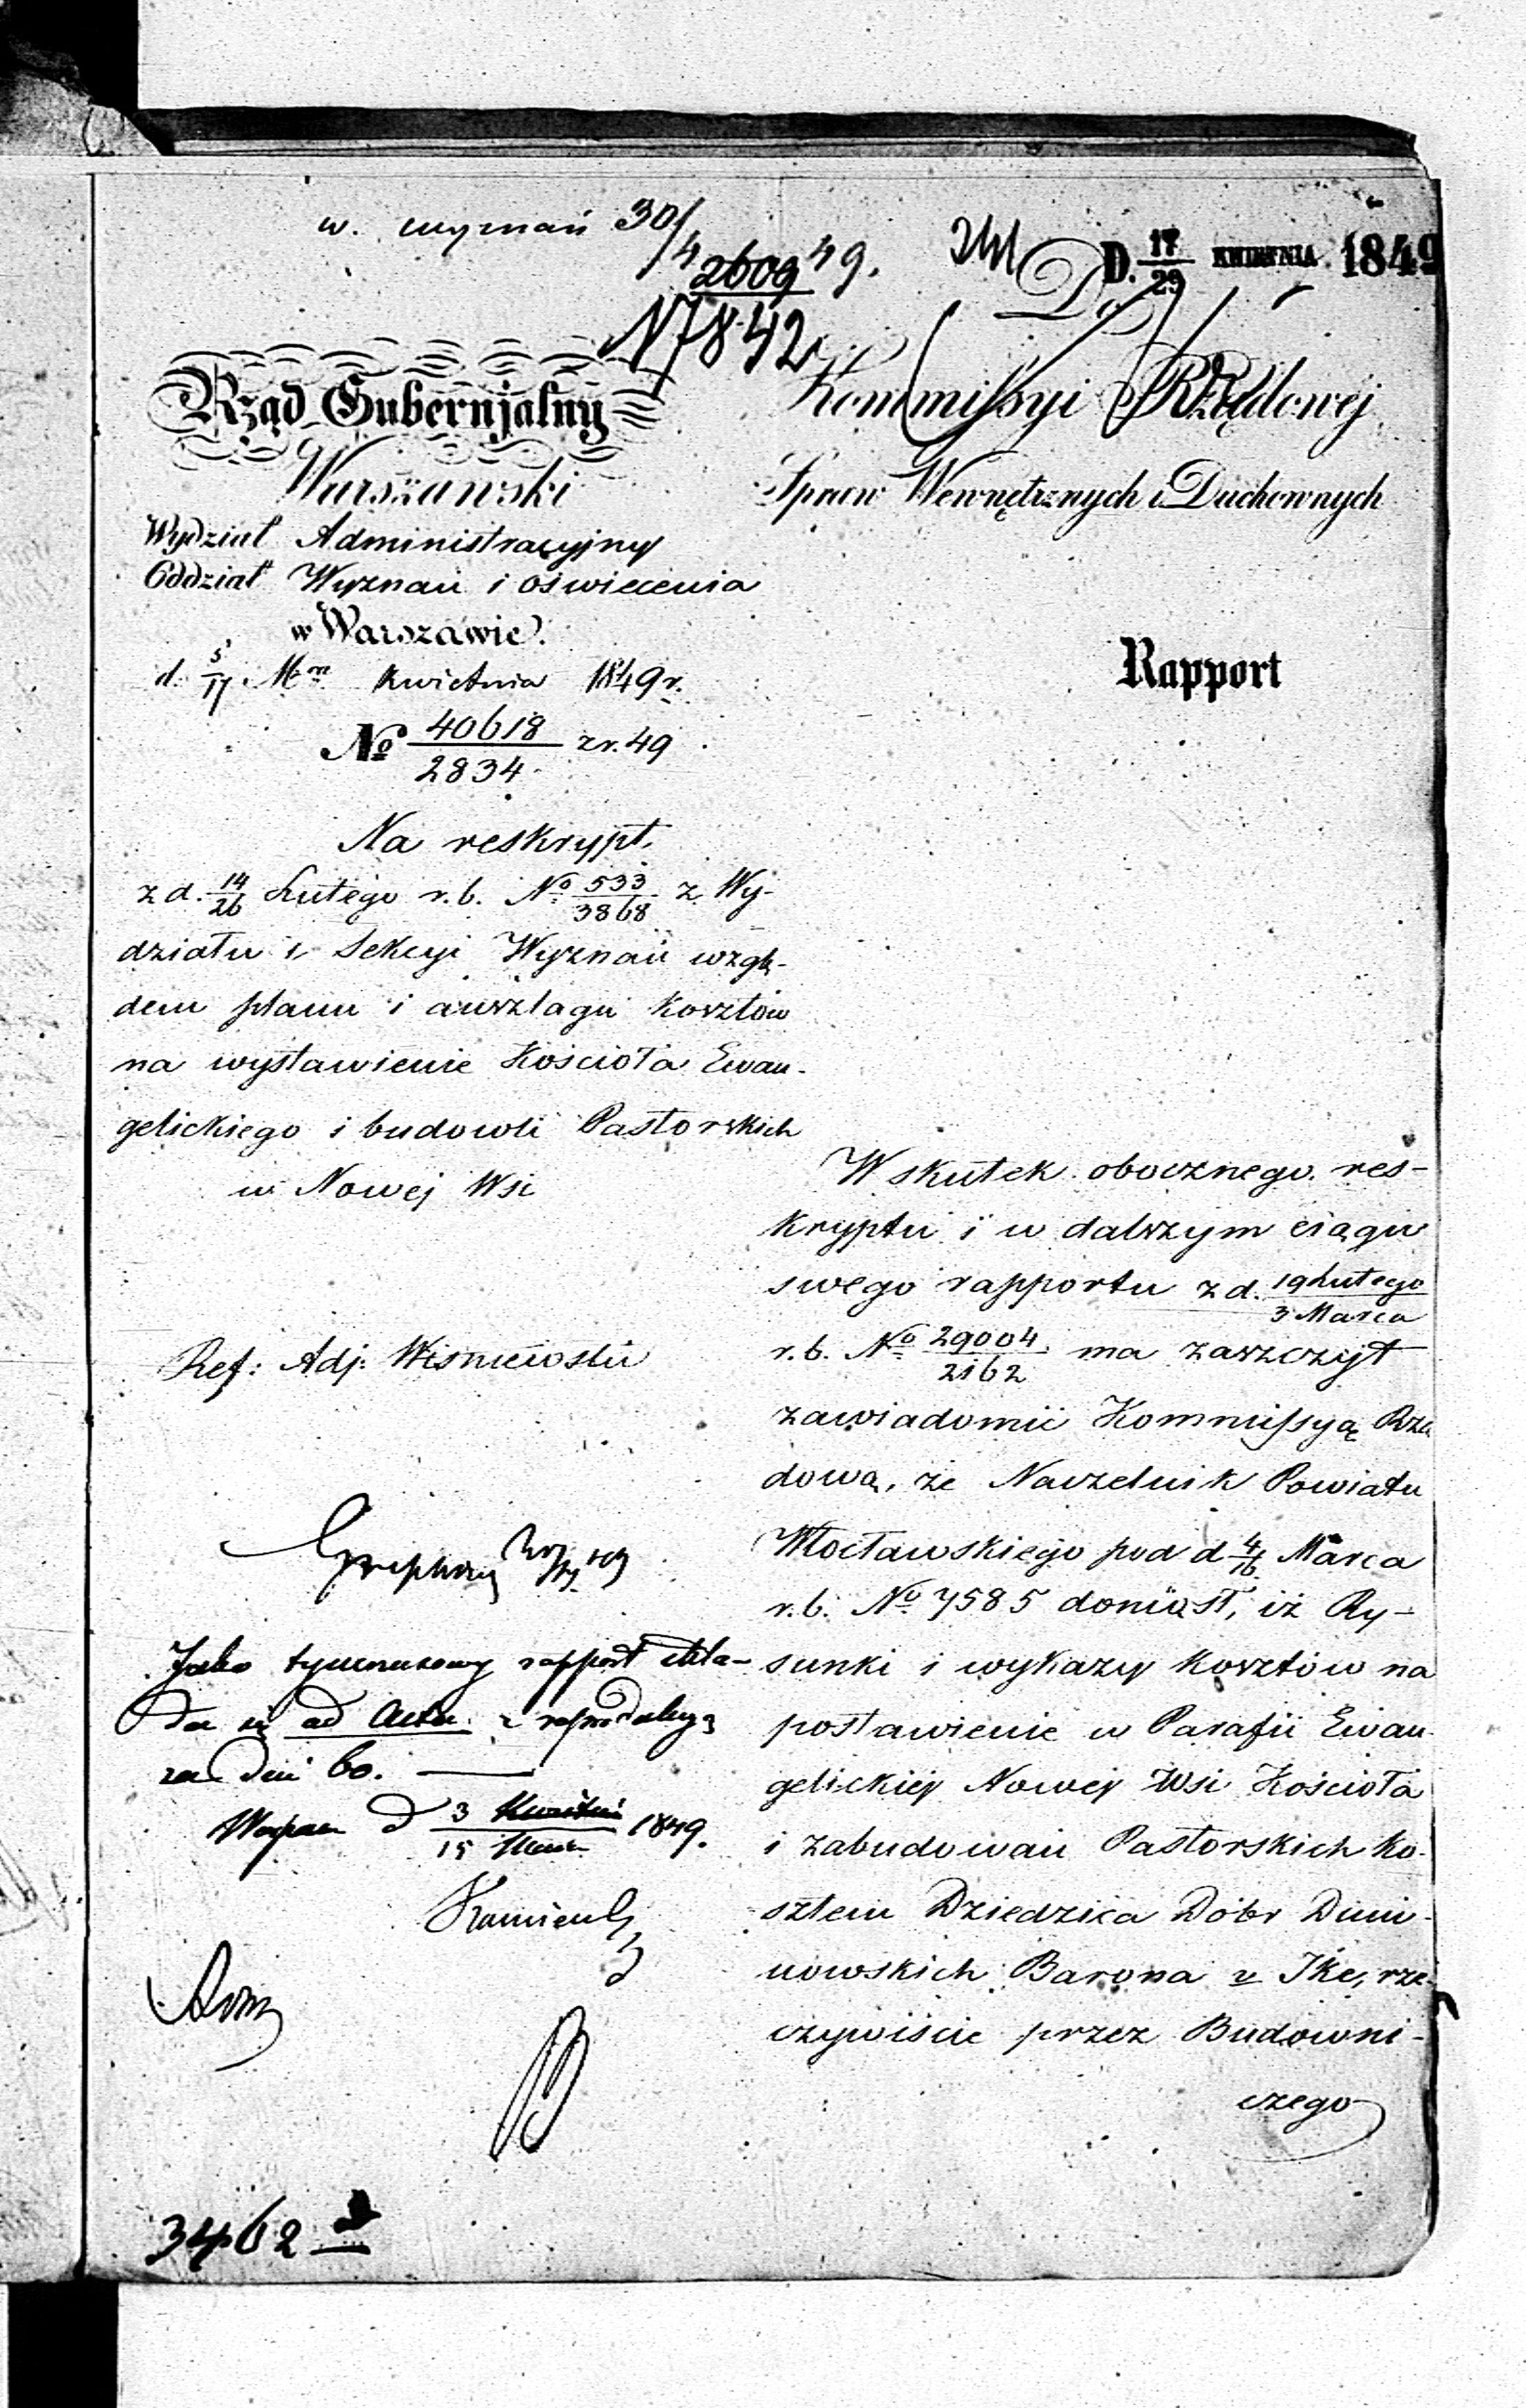 w. wyznań 30/4 49.
2609
N 7842
D. 17/29 KWIETNIA 1849
Do
Kommissyi Rządowej
Spraw Wewnętrznych i Duchownych
Rapport
Rząd Gubernjalny
Warszawski
Wydział Administracyjny
Oddział Wyznań i oświecenia
w Warszawie.
d. 5/17 Mca Kwietnia 1849 r.
No 40618/2834 z r. 49
Na reskrypt
z d. 14/26 Lutego r. b. No 533/3868 z Wy-
działu i Sekcyi Wyznań wzglę-
dem planu i anszlagu kosztów
na wystawienie Kościoła Ewan-
gelickiego i budowli Pastorskich
w Nowej Wsi
Ref: Adj: Wiśniewski
Jako tymczasowy rapport skła-
da się ad Acta z reprodukcyą
za dni 60.
d 3/15 1849.
3462
W skutek obocznego res-
kryptu i w dalszym ciągu
swego rapportu z d. 19 Lutego/3 Marca
r. b. No 29004/2162 ma zaszczyt
zawiadomić Kommissyą Rzą
dową, że Naczelnik Powiatu
Włocławskiego pod d 4/16 Marca
r. b. No 7585 doniósł, iż Ry-
sunki i wykazy kosztów na
postawienie w Parafii Ewan-
gelickiéj Nowej Wsi Kościoła
i zabudowań Pastorskich ko-
sztem Dziedzica Dóbr Duni-
nowskich Barona v Ike, rze-
czywiście przez Budowni-
czego